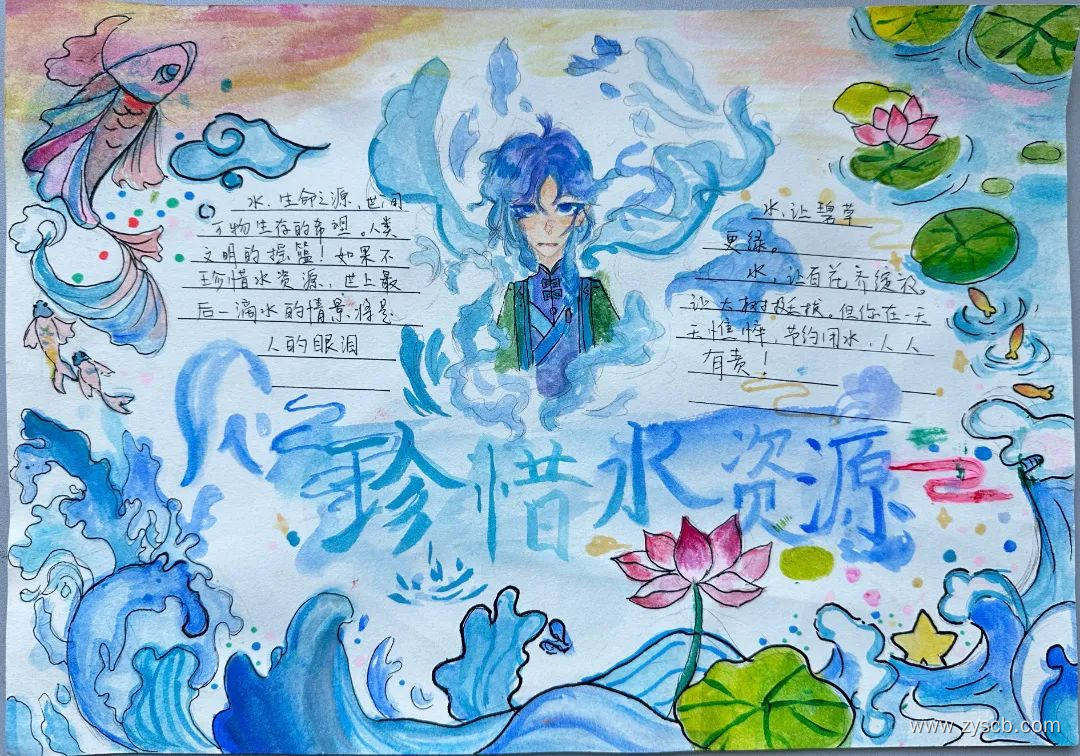 水,生命之源,世间
万物生存的希望。人类
文明的摇篮!如果不
珍惜水资源,世上最
后一滴水的情景将是
人的眼泪
水,让碧草
更绿。
水,让百花齐绽放。
让大树挺拔。但你在一天
天憔悴,节约用水,人人
有责!
珍惜水资源
www.zyscb.com